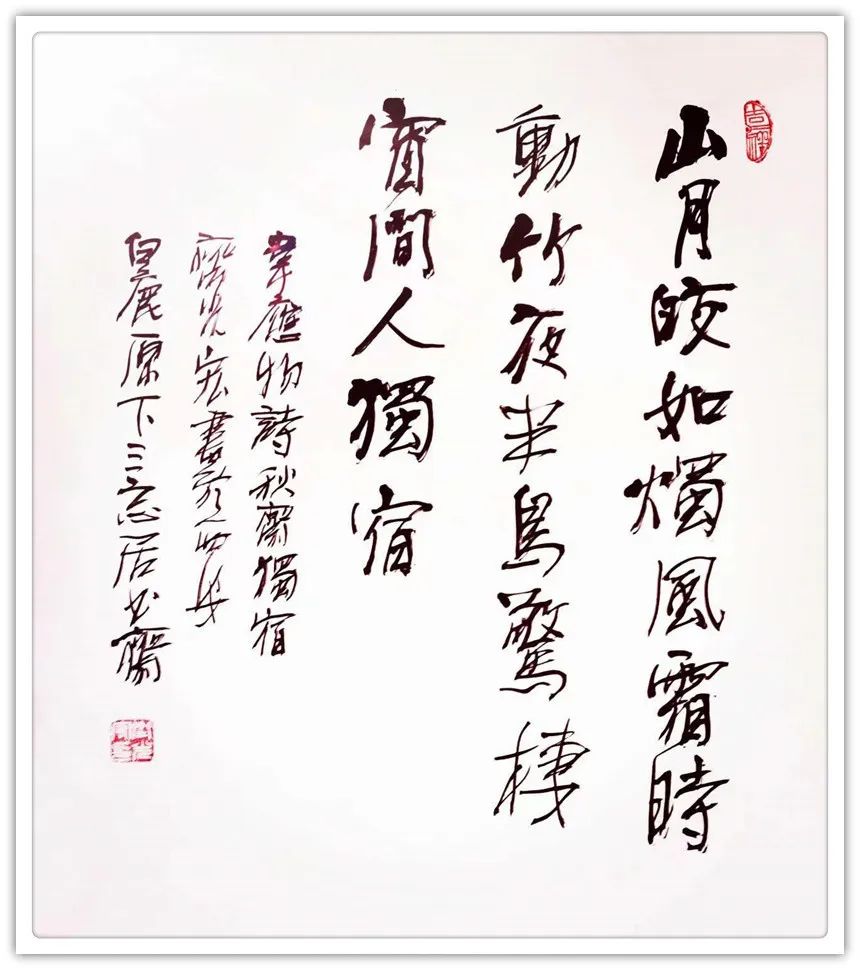 吉祥
山月皎如燭風霜時
動竹夜半鳥驚棲
窗間人獨宿
韋應物詩秋齋獨宿
齊光宏書於
白鹿原下三忘居书齋